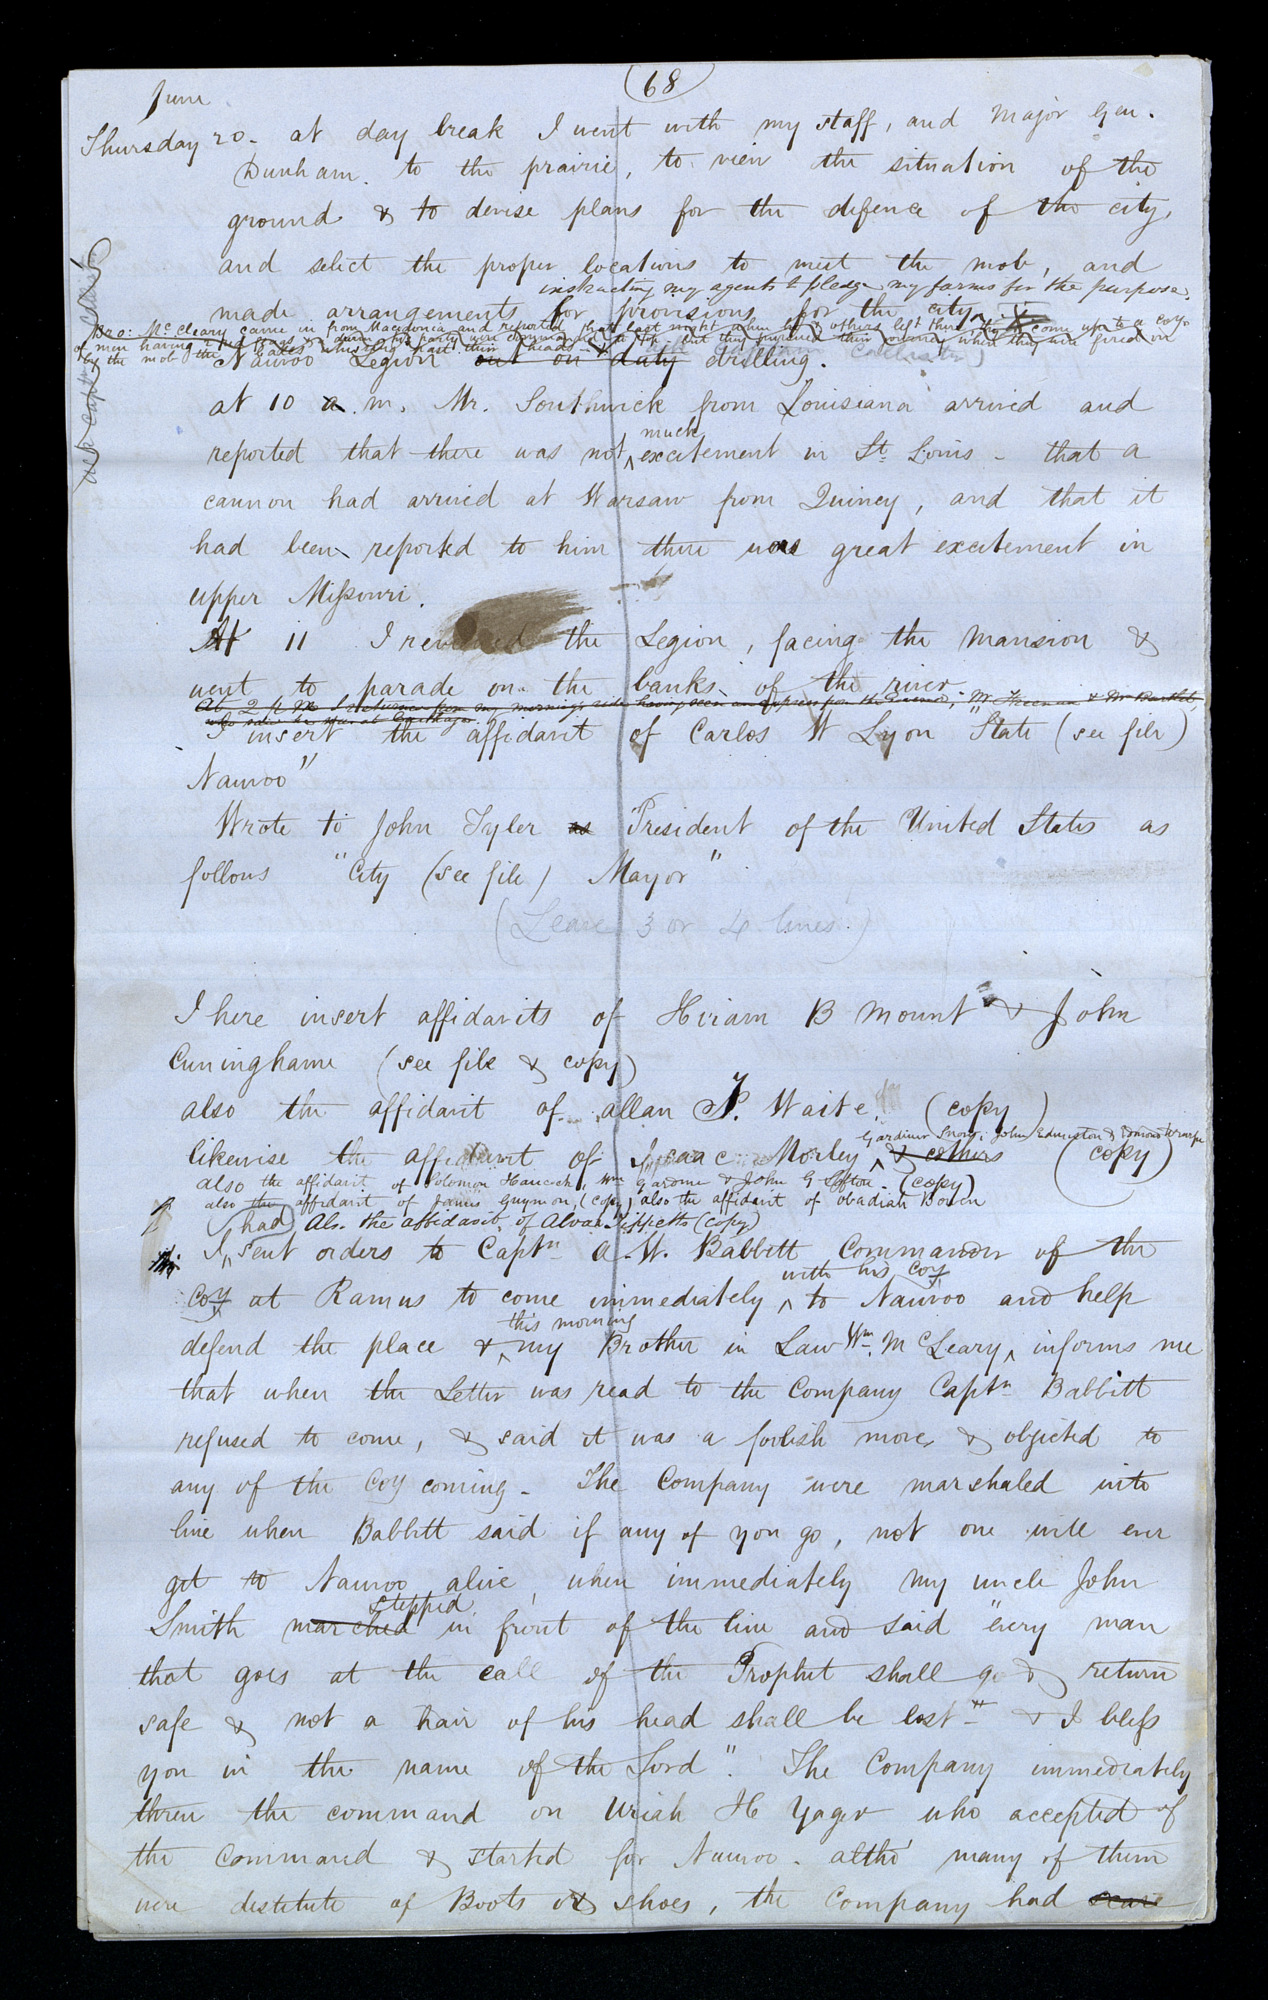 (68)
June
Thursday 20. at day break I went with my staff, and Major Gen.
Dunham. to the prairie, to view the situation of the
ground & to devise plans for the defence of the city,
and select the proper locations to meet the mob, and
instructing my agents to pledge my farms for the purpose.
made arrangements for provisions for the city,
Bro: McCleary came in from Macedonia and reported that last night when he & others left there, they come up to a coy.
of men having 2 red flags
by the mob
Nauvoo Legion out on duty drilling.
at 10 a.m. Mr. Southwick from Louisiana arrived and
much
reported that there was not ^ excitement in St. Louis – that a
cannon had arrived at Warsaw from Quincy, and that it
had been reported to him there was great excitement in
upper Missouri.
At 11 I reviewed the Legion, facing the mansion &
went to parade on the banks of the river
At 2 p m I returned from my morning's ride having seen an express from the Governor, Mr
I insert the affidavit of Carlos W Lyon "State (see file)
Nauvoo"
Wrote to John Tyler as President of the United States as
follows "City (see file) Mayor"
(Leave 3 or 4 lines.)
I here insert affidavits of Hiram B Mount & John
Cuninghame (see file & copy)
also the affidavit of allan T. Waite. (copy)
Gardiner Snow, John Edmiston & Edmond Durfee
likewise the affidavit of Isaac Morley ^ & others (copy)
also the affidavit of Solomon Hancock, Wm Gardner & John G Lofton. (copy)
also the affidavit of James Guymon, (copy) also the affidavit of Obadiah Bowen
(had) Also the affidavit of Alvah Tippetts (copy)
I ^ sent orders to Captn A. W. Babbitt Commander of the
with his coy
coy at Ramus to come immediately ^ to Nauvoo and help
this morning
defend the place & ^ my Brother in Law Wm. McCleary ^ informs me
that when the Letter was read to the Company Captn Babbitt
refused to come, & said it was a foolish move, & objected to
any of the Coy coming. The Company were marshaled into
line when Babbitt said if any of you go, not one will ever
get to Nauvoo alive, when immediately my uncle John
stepped
Smith marched in front of the line and said "every man
that goes at the call of the Prophet shall go & return
safe & not a hair of his head shall be lost – & I bless
you in the name of the Lord". The Company immediately
threw the command on Uriah H Yager who accepted of
the Command & started for Nauvoo. altho' many of them
were destitute of Boots or shoes, the Company had scarce